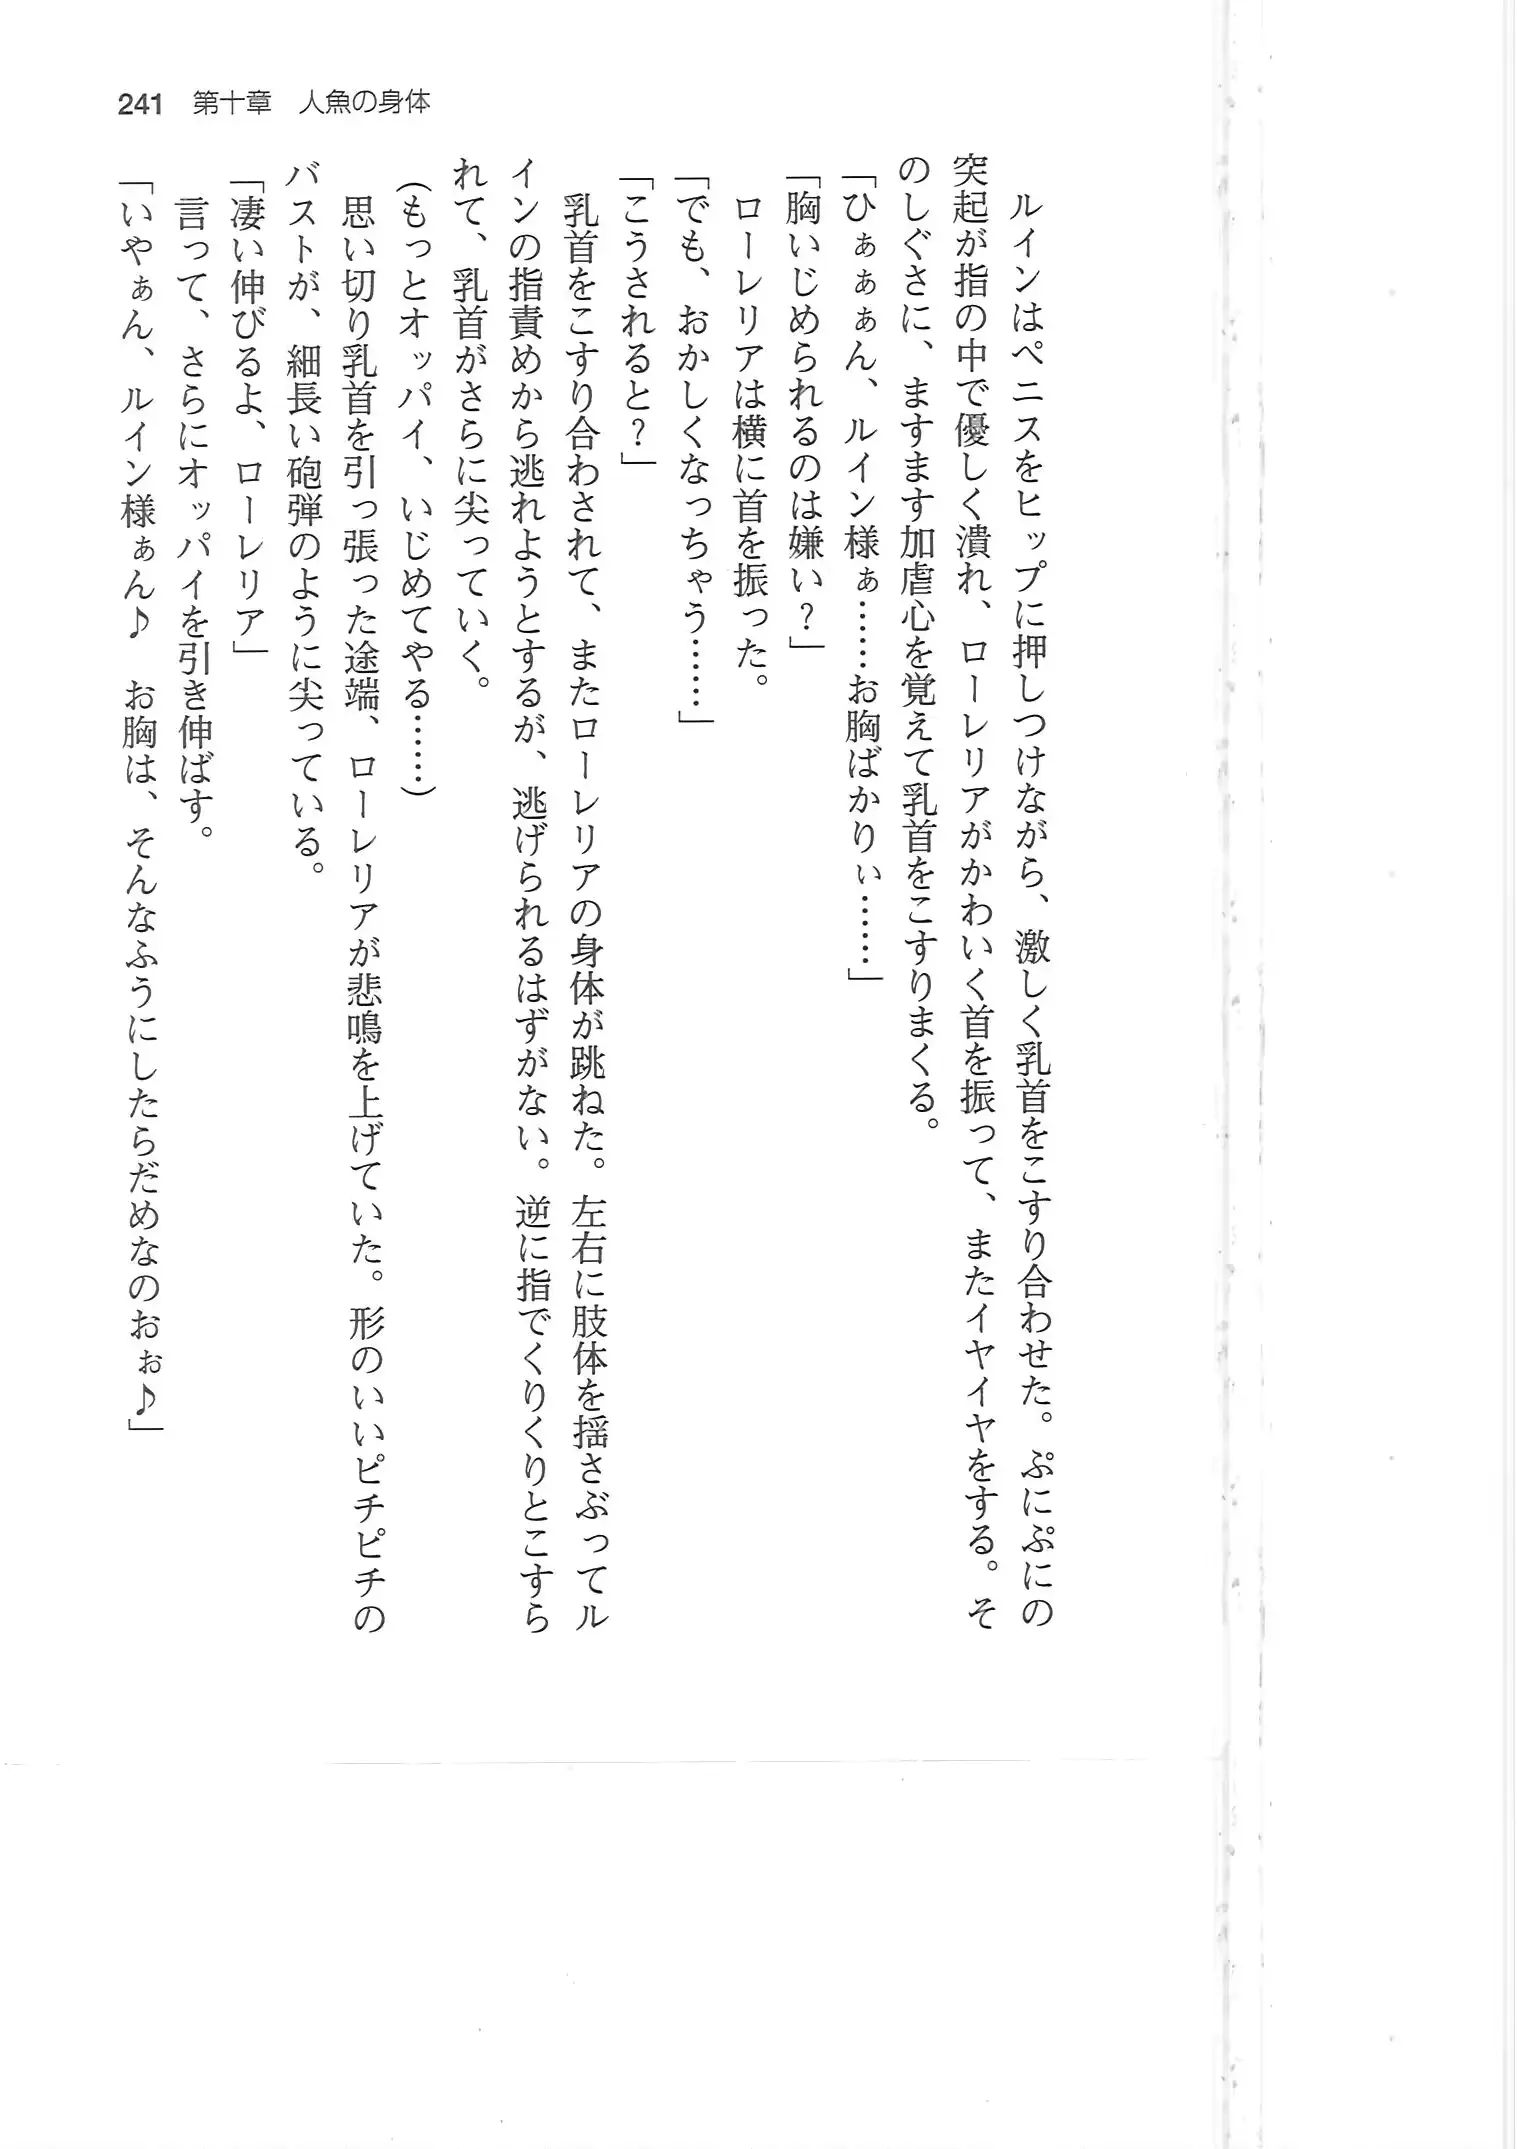 241　第十章　人魚の身体
　ルインはペニスをヒップに押しつけながら、激しく乳首をこすり合わせた。ぷにぷにの
突起が指の中で優しく潰れ、ローレリアがかわいく首を振って、またイヤイヤをする。そ
のしぐさに、ますます加虐心を覚えて乳首をこすりまくる。
「ひぁぁぁん、ルイン様ぁ……お胸ばかりぃ……」
「胸いじめられるのは嫌い？」
　ローレリアは横に首を振った。
「でも、おかしくなっちゃう……」
「こうされると？」
　乳首をこすり合わされて、またローレリアの身体が跳ねた。左右に肢体を揺さぶってル
インの指責めから逃れようとするが、逃げられるはずがない。逆に指でくりくりとこすら
れて、乳首がさらに尖っていく。
（もっとオッパイ、いじめてやる……）
　思い切り乳首を引っ張った途端、ローレリアが悲鳴を上げていた。形のいいピチピチの
バストが、細長い砲弾のように尖っている。
「凄い伸びるよ、ローレリア」
　言って、さらにオッパイを引き伸ばす。
「いやぁん、ルイン様ぁん♪　お胸は、そんなふうにしたらだめなのおぉ♪」